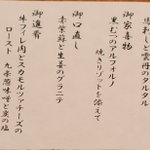 馬刺しと雲丹のタルタル
御家喜物
黒むつのアルフォルノ
焼きリゾットを添えて
御口直し
赤紫蘇と生姜のグラニテ
御進肴
牛フィレ肉とスカモルツァチーズの
ロースト 九条葱味噌と炭の塩